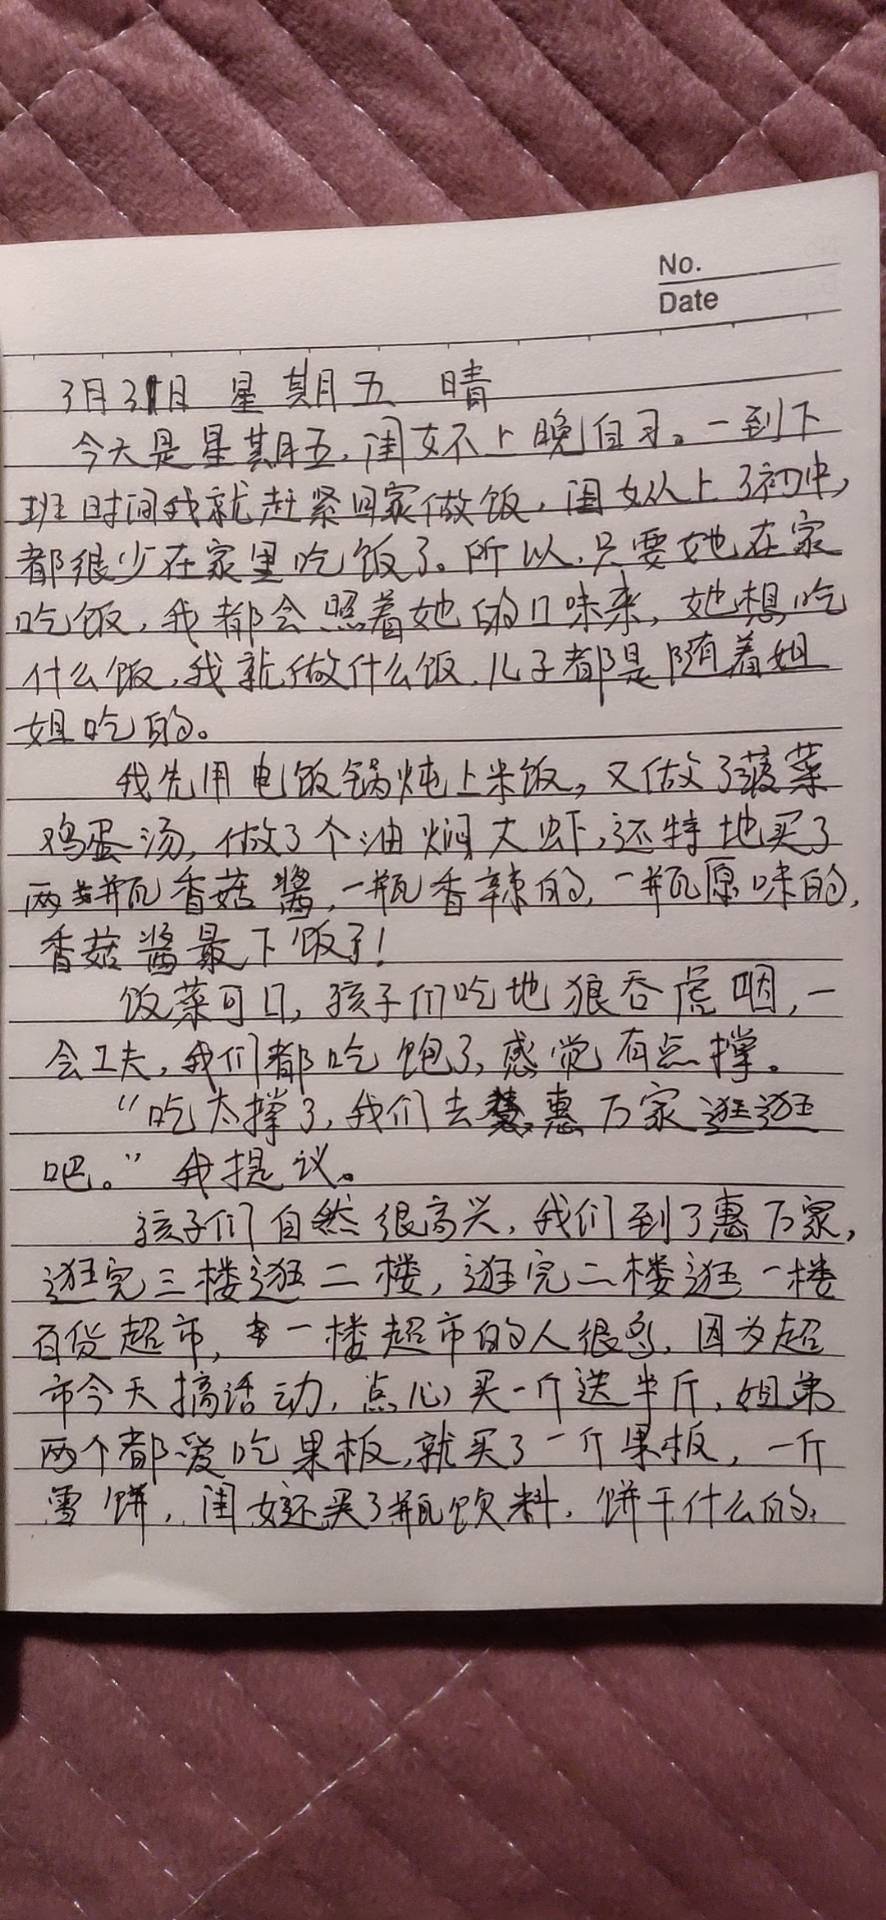 No.
Date
3月31日 星期五 晴
今天是星期五,闺女不上晚自习。一到下
班时间我就赶紧回家做饭,闺女从上了初中,
都很少在家里吃饭了。所以,只要她在家
吃饭,我都会照着她的口味来,她想吃
什么饭,我就做什么饭,儿子都是随着姐
姐吃的。
我先用电饭锅炖上米饭,又做了菠菜
鸡蛋汤,做了个油焖大虾,还特地买了
两瓶香菇酱,一瓶香辣的,一瓶原味的,
香菇酱最下饭了!
饭菜可口,孩子们吃地狼吞虎咽,一
会工夫,我们都吃饱了,感觉有点撑。
“吃太撑了,我们去惠万家逛逛
吧。”我提议。
孩子们自然很高兴,我们到了惠万家,
逛完三楼逛二楼,逛完二楼逛一楼
百货超市,一楼超市的人很多,因为超
市今天搞活动,点心买一斤送半斤,姐弟
两个都爱吃果板,就买了一斤果板,一斤
雪饼,闺女还买了瓶饮料,饼干什么的,